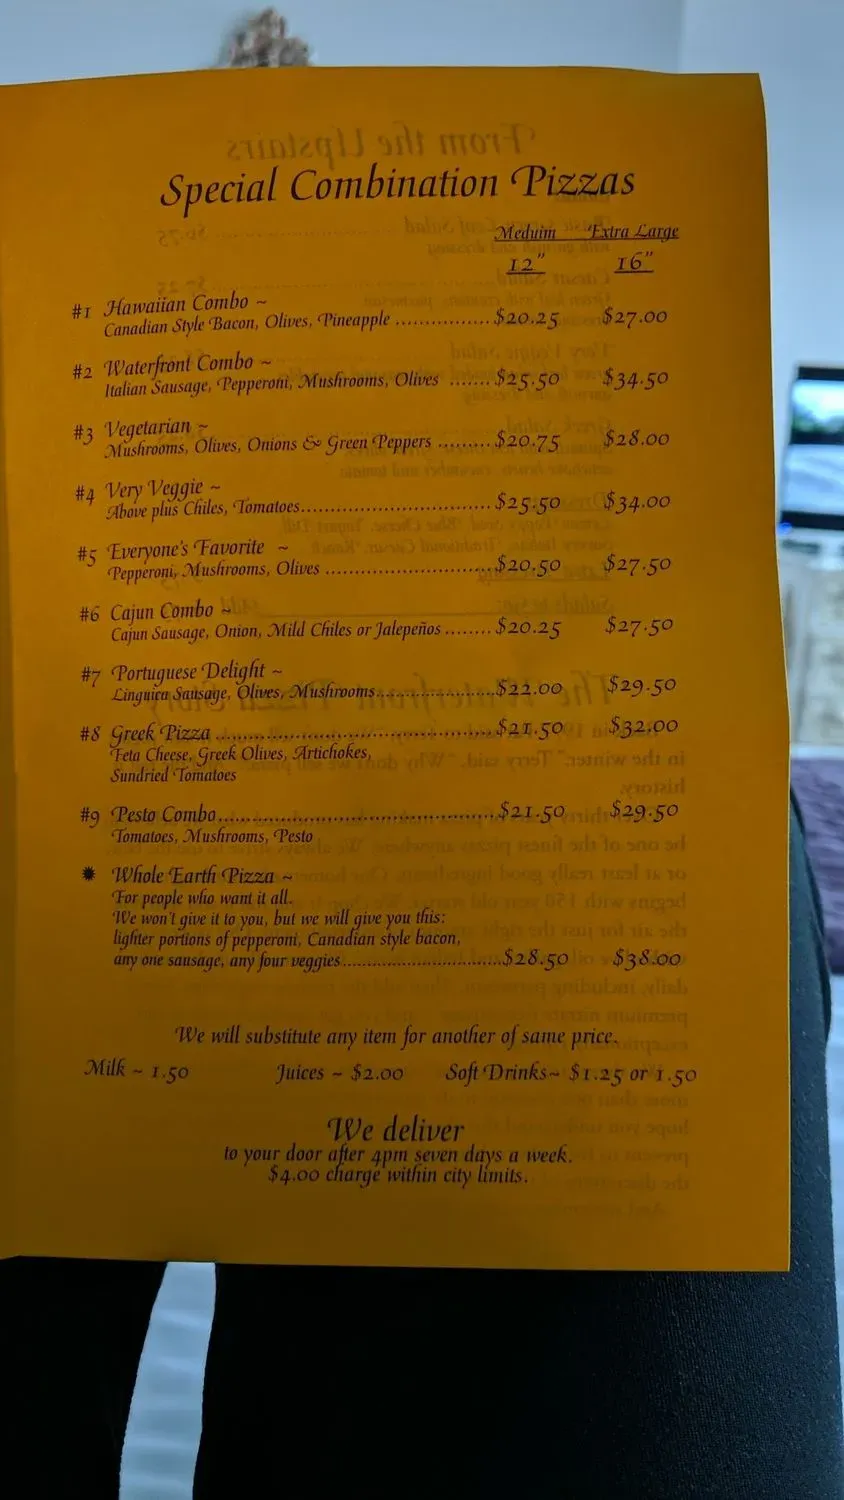 Special Combination Pizzas
Meduim Extra Large
12" 16"
#1 Hawaiian Combo ~
Canadian Style Bacon, Olives, Pineapple ................ $20.25 $27.00
#2 Waterfront Combo ~
Italian Sausage, Pepperoni, Mushrooms, Olives ....... $25.50 $34.50
#3 Vegetarian ~
Mushrooms, Olives, Onions & Green Peppers ......... $20.75 $28.00
#4 Very Veggie ~
Above plus Chiles, Tomatoes................................. $25.50 $34.00
#5 Everyone's Favorite ~
Pepperoni, Mushrooms, Olives ............................. $20.50 $27.50
#6 Cajun Combo ~
Cajun Sausage, Onion, Mild Chiles or Jalepeños ........ $20.25 $27.50
#7 Portuguese Delight ~
Linguica Sausage, Olives, Mushrooms..................... $22.00 $29.50
#8 Greek Pizza ................................................ $21.50 $32.00
Feta Cheese, Greek Olives, Artichokes,
Sundried Tomatoes
#9 Pesto Combo................................................ $21.50 $29.50
Tomatoes, Mushrooms, Pesto
✹ Whole Earth Pizza ~
For people who want it all.
We won't give it to you, but we will give you this:
lighter portions of pepperoni, Canadian style bacon,
any one sausage, any four veggies............................ $28.50 $38.00
We will substitute any item for another of same price.
Milk ~ 1.50 Juices ~ $2.00 Soft Drinks~ $1.25 or 1.50
We deliver
to your door after 4pm seven days a week.
$4.00 charge within city limits.